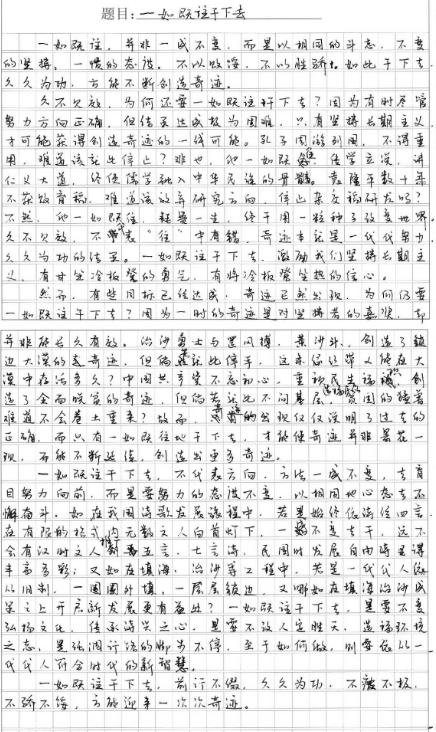 题目:一如既往干下去
一如既往,并非一成不变,而是以相同的斗志,不变
的坚持,一惯的态度,不以败馁,不以胜骄。如此干下去,
久久为功,方能不断创造奇迹。
久不见效,为何还要一如既往干下去?因为有时尽管
努力方向正确,但结果达成极为困难,只有坚持长期主义,
才可能获得创造奇迹的一线可能。孔子周游列国,不得重
用,难道该就此停止?非也,他一如既往,传学立说,讲
仁义大道,终使儒学融入中华民族的骨髓。袁隆平数十年
不获 育稻,难道该放弃研究方向,停止杂交稻研发吗?
不然,他一如既往,耗费一生,终于用一粒种子改变世界。
久不见效,不代表“往”中有错,奇迹本就是一代代努力,
久久为功的结果。一如既往干下去,激励我们坚持长期主
义,有甘坐冷板凳的勇气,有将冷板凳坐热的信心。
然而,有些目标已经达成,奇迹已然出现,为何仍要
一如既往干下去?因为一时的奇迹是对坚持者的嘉奖,却
并非能长久有效。治沙勇士与黑风搏,黄沙斗,创造了
边大漠的 奇迹,但倘若就此停手,这来 绿又能在大
漠中存活多久?中国共产党不忘初心,重视民生福祉,创
造了全面脱贫的奇迹,但倘若就此不问基层,贫困的
难道不会卷土重来?故而,奇迹的出现仅仅说明了过去的
正确,而只有一如既往地干下去,才能使奇迹并非昙花一
现,而能不断延续,创造出更多奇迹。
一如既往干下去,不代表方向,方法一成不变,去盲
目努力向前,而是要努力的态度不变,以相同地心态去不
懈奋斗。如在我国诗歌发展历程中,若是始终依循在四言,
在有限的格式内无数文人白首灯下,一 不变去干,远不
会有汉时文人 五言,七言诗,民国时发展自由诗
丰富多彩;又如在填海,治沙等工程中,若是一代代人
以旧制,一圈圈外填,一层层 边,又哪如在填海治沙成
果之上开启新发展更有益处?一如既往干下去,是要不变
弘扬文化,传承 之心,是要不改人定胜天,造福环境
之志,是强调行流的脚步不停,至于如何做,则要依以一
代代人符合时代的新智慧。
一如既往干下去,前行不倦,久久为功,不 不极,
不骄不馁,方能迎来一次次奇迹。